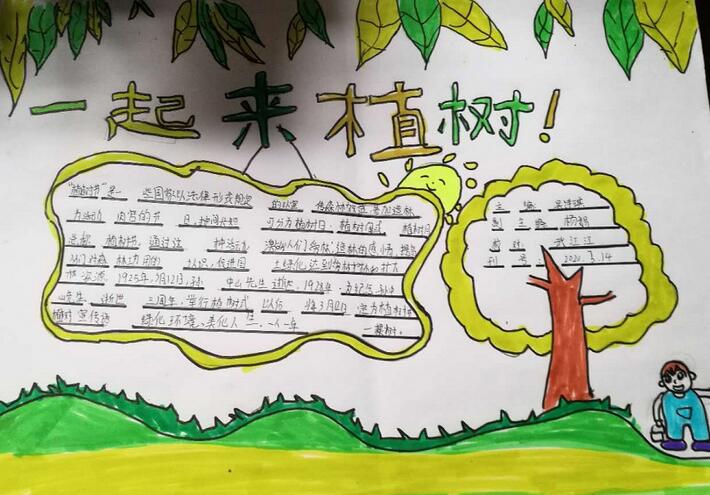 一起来植树！
"植树节"是一些国家以法律形式规定的以宣传森林效益，
为活动内容的节日，按时间长短可分为植树日、植树周或植树月
总称植树节。通过这种活动，激发人们爱林、造林的感情，提高
人们对森林功用的认识，促进国土绿化，达到爱林护林和扩大
林资源。1925年3月12日，孙中山先生逝世，1928年，为纪念孙中
山先生逝世三周年，举行植树式以后将3月12日定为植树节
植树宣传语 绿化环境，美化人生，一人一年一棵树。
主编
副主编 杨娟
设计 武江江
刊号 2021.3.14